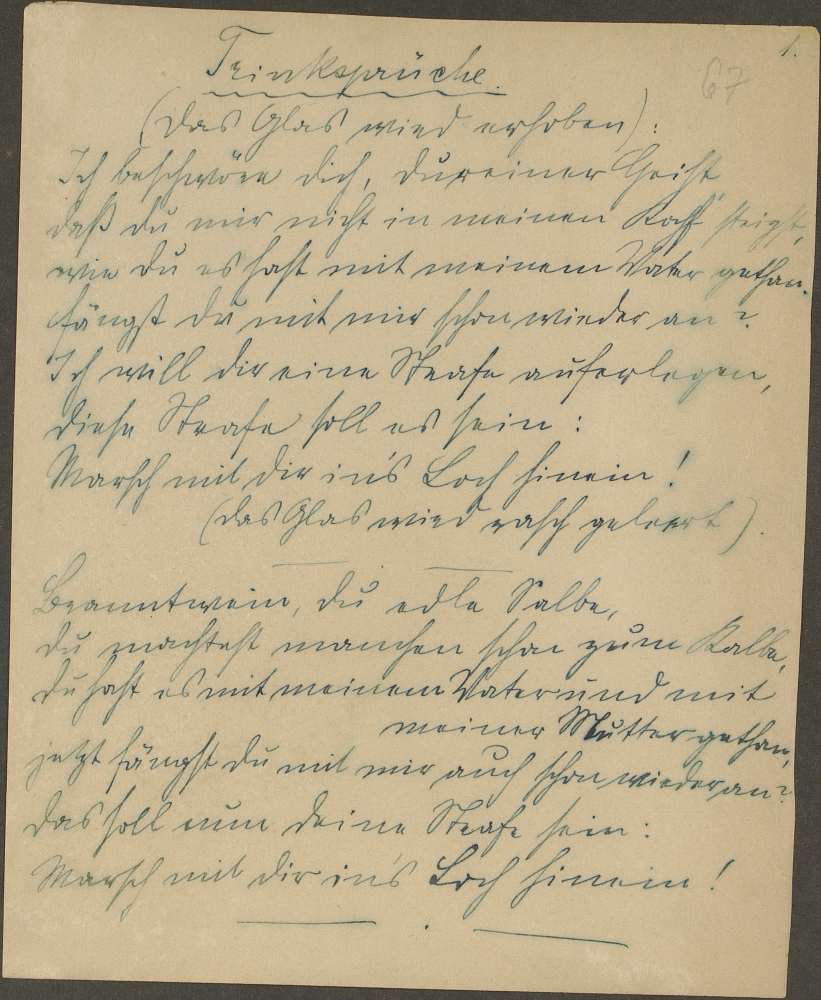 1.
67
Trinksprüche.
(Das Glas wird erhoben):
Ich beschwöre dich, du reiner Geist
daß du mir nicht in meinen Kopf steigst,
wie du es hast mit meinem Vater gethan.
Fängst du mit mir schon wieder an?
Ich will dir eine Strafe auferlegen,
diese Strafe soll es sein:
Marsch mit dir in's Loch hinein!
(Das Glas wird rasch geleert).
Branntwein, du edle Salbe,
du machtest manchen schon zum Kalbe,
du hast es mit meinem Vater und mit
meiner Mutter gethan,
jetzt fängst du mit mir auch schon wieder an?
Das soll nun deine Strafe sein:
Marsch mit dir in's Loch hinein!